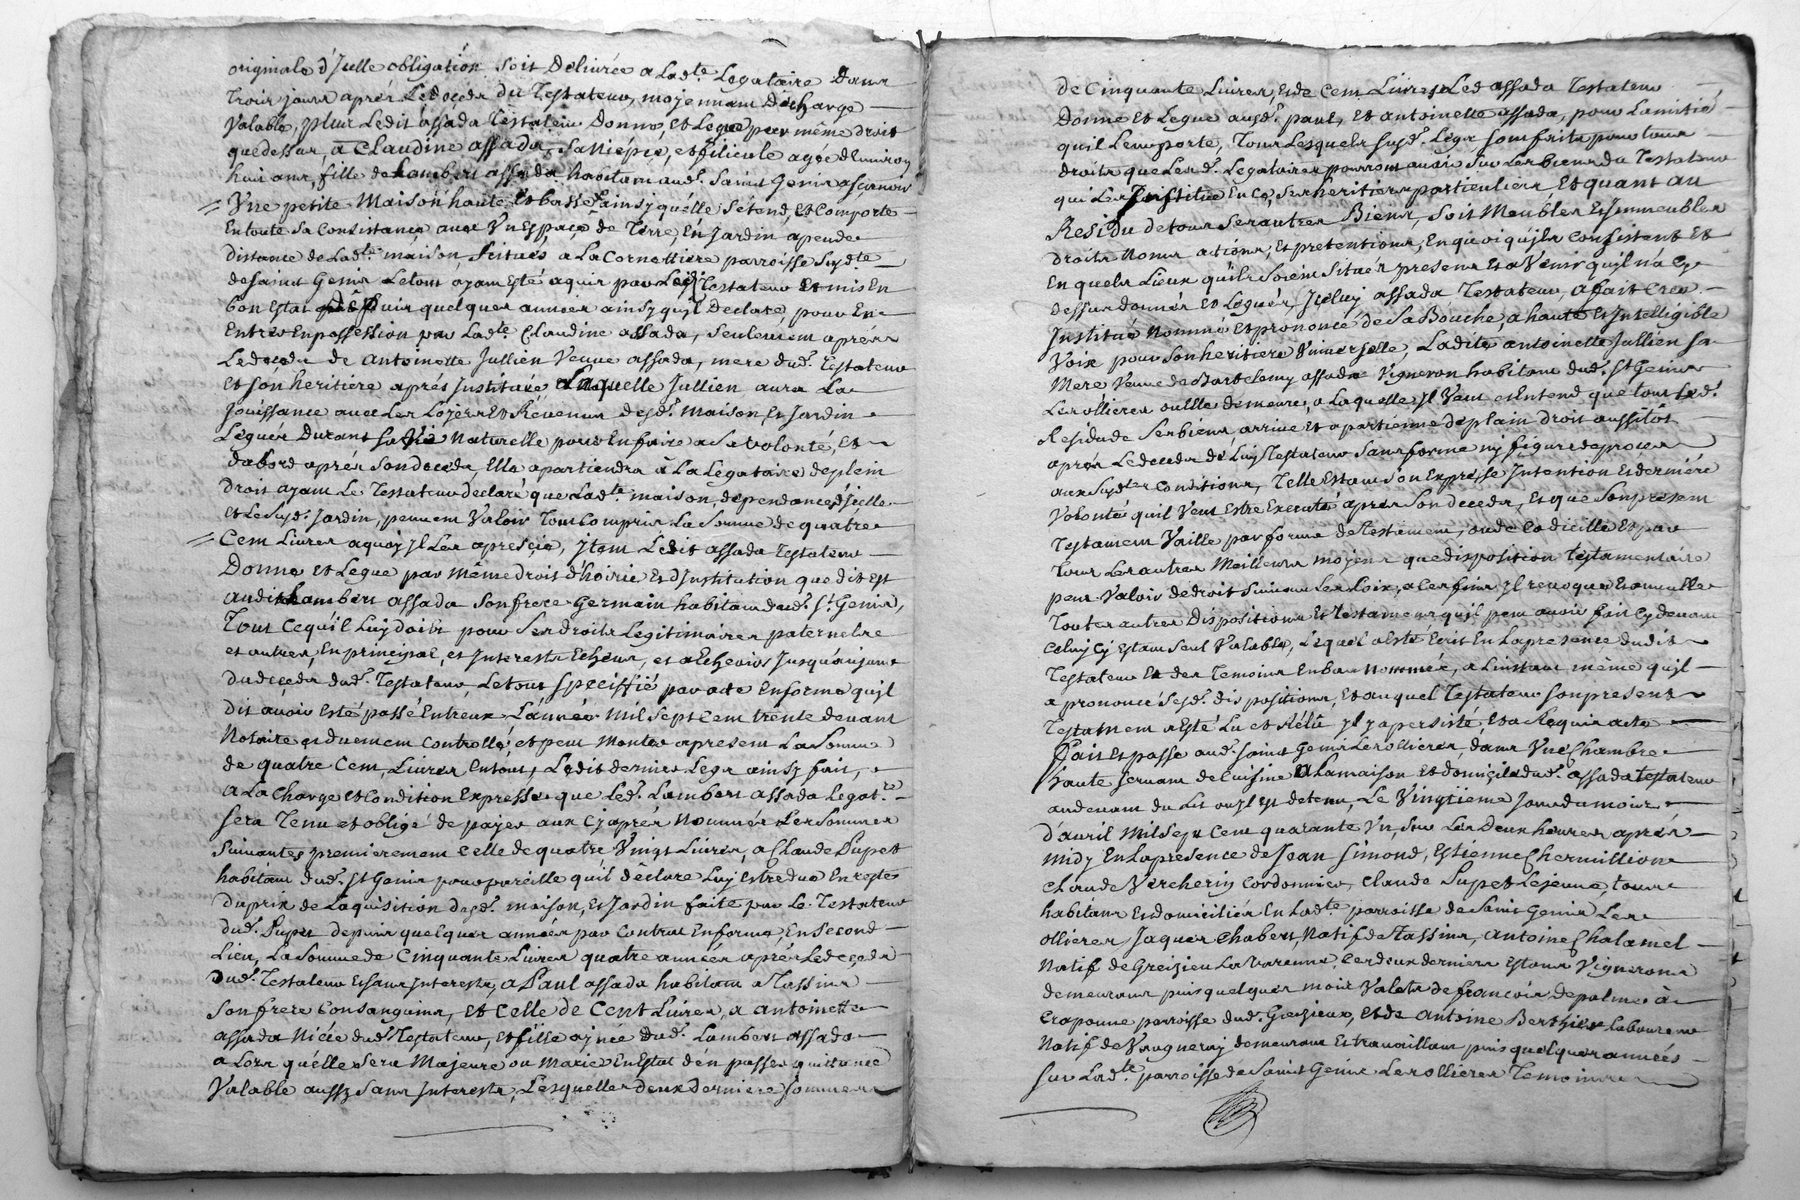 originale d'Jcelle obligation soit Delivrée a Lad.te Legataire dans
trois jours aprés Ledeceds du Testateur, moyennant décharge
Valable, plus Ledit assada Testateur Donne et Legue par même droit
que dessus, a Claudine assada, sa Niépce, et filieule agée d'Environ
huit ans, fille de Lambert assada habitant aud. Saint Genis
Vne petite Maison haute, et basse, ainsy qu'elle s'étend, et Comporte
En toute sa Consistance, avec Vn Espace de Terre, En Jardin a peu de
distance de Lad.te maison, scitués a La Cornettiere parroisse susd.te
de saint Genis Le tout ayant Esté aquis par Led. Testateur Et mis En
bon Estat depuis quelques années ainsy qu'jl Declare, pour En
Entrer En possession par Lad.te Claudine assada, seulement aprés
Le deceds de antoinette Jullien Veuve assada, mere dud. Testateur
Et son heritiere aprés Jnstituée Laquelle Jullien aura La
Joüissance avec Les Loyers Et Révenus desd. maison, Et Jardin
Légués Durant sa Vie Naturelle pour En faire a sa Volonté, Et
dabord aprés son deceds Elle apartiendra à La Légataire de plein
droit ayant Le Testateur declaré que Lad.te maison, dependances d'jcelle
Et Le susd. Jardin, peuvent Valoir Tout Compris La Somme de quatre
Cent Livres a quoy Jl Les apreçie, Jtem Ledit assada Testateur
Donne et Legue par Même droit d'hoirie Et d'Jnstitution que dit Est
audit Lambert assada son frere Germain habitant aud. S.t Genis,
Tout Ce qu'il Luy doibt pour ses droits Legitimaires paternels
et autres, En principal, et Jnterests Echeus, et a Echeoir Jusqu'au jour
du deceds dud. Testateur, Le tout speciffié par acte En forme qu'jl
dit avoir Esté passé Entreux L'année Mil sept Cent trente devant
Notaire et duement Controllé, et peut Monter a present La Somme
de quatre Cent Livres En tout, Ledit dernier Legs ainsy fait,
a La Charge et Condition Expresse que Led. Lambert assada Legat.re
sera Tenu et obligé de payer aux Cy aprés Nommés Les Sommes
Suivantes premierement Celle de quatre Vingt Livres, a Claude Dupet
habitant dud. S.t Genis pour pareille qu'il déclare Luy Estre deue En reste
du prix de L'aquisition desd. maison, Et Jardin faite par Le Testateur
dud. Dupet depuis quelques années par Contrat En forme, En second
Lieu, La Somme de Cinquante Livres quatre années aprés Le deceds
Dud. Testateur Et sans Jnterests, a Paul assada habitant a Tassins
son frere Consanguin, et Celle de Cent Livres, a antoinette
assada Niéce dud. Testateur, Et fille aynée Dud. Lambert assada
a Lors qu'elle sera Majeure ou Mariée En Estat d'en passer quittance
Valable aussy sans Jnterests, Lesquelles deux dernieres sommes
de Cinquante Livres, Et de Cent Livres Led assada Testateur
Donne Et Legue ausd. paul, Et antoinette assada, pour L'amitié
qu'il Leur porte, Tous Lesquels susd. Legs sont faits pour tous
droits que Lesd. Legataires pourront avoir sur Les biens du Testateur
qui Les Jnstitue En Ce, ses heritiers particuliers, Et quant au
Residu de tous ses autres Biens, soit Meubles Et Jmmeubles
droits Noms actions, Et pretentions, En quoi qu'jls Consistent Et
En quels Lieux qu'ils soient situés presens Et a Venir qu'jl n'a Cy
dessus donnés Et Legués, Jceluy assada Testateur, a fait Creé
Jnstitué Nommé Et prononcé de sa Bouche, a haute Et Jntelligible
Voix pour son heritiere Vniverselle, Ladite antoinette Jullien sa
Mere Veuve de Bartelemy assada Vigneron habitant dud. S.t Genis
Les ollieres ou Elle demeure, a Laquelle Jl Veut et Entend que tout Led.
Residu de ses biens arrive Et apartienne de plain droit aussitôt
aprés Le deceds dé Luy Testateur sans forme ny figure de procés
aux susd.tes Conditions, Telle Estant son Expresse Jntention Et derniére
Volonté qu'il Veut Estre Executé aprés son deceds, Et que son present
Testament Vaille par forme de Testament, ou de Codicille Et par
Tous Les autres Meilleurs moyens que disposition Testamentaire
peut Valoir de droit suivant Les Loix, a Ces fins Jl revoque Et annulle
Toutes autres Dispositions Et Testaments qu'jl peut avoir fait Cy devant
Celuy Cy Estant seul Valable, Lequel a Esté Ecrit En La presence dudit
Testateur Et des Temoins En bas Nommés, a L'instant même qu'jl
a prononcé sesd. dispositions, Et auquel Testateur son present
Testament a Esté Lu et Rélû Jl y a persisté, Et a Requis acte
Fait Et passé aud. saint Genis Les ollieres, dans Vne Chambre
haute servant de Cuisine a La maison Et domicile dud. assada testateur
au devant du Lit ou Jl Est detenu, Le Vingtième jour du mois
d'avril Mil sept Cent quarante Vn, sur Les Deux heures aprés
midy En La presence de Jean Simond, Estienne Chermillion
Claude Vercherin Cordonnier, Claude Dupet Le jeune, tous
habitans Et domiciliés En Lad.te parroisse de Saint Genis Les
ollieres, Jaques Chabert, Natif de Tassins, antoine Chalamel
Natif de Greizieu La Varenne, Ces deux derniers Estans Vignerons
demeurans puis quelques mois Valets de francois depalme à
Craponne parroisse dud. Greizieux, Et de antoine Berthier Laboureur
Natif de Vaugneray demeurant Et travaillant puis quelques années
sur Lad.te parroisse de Saint Genis Les ollieres Temoins